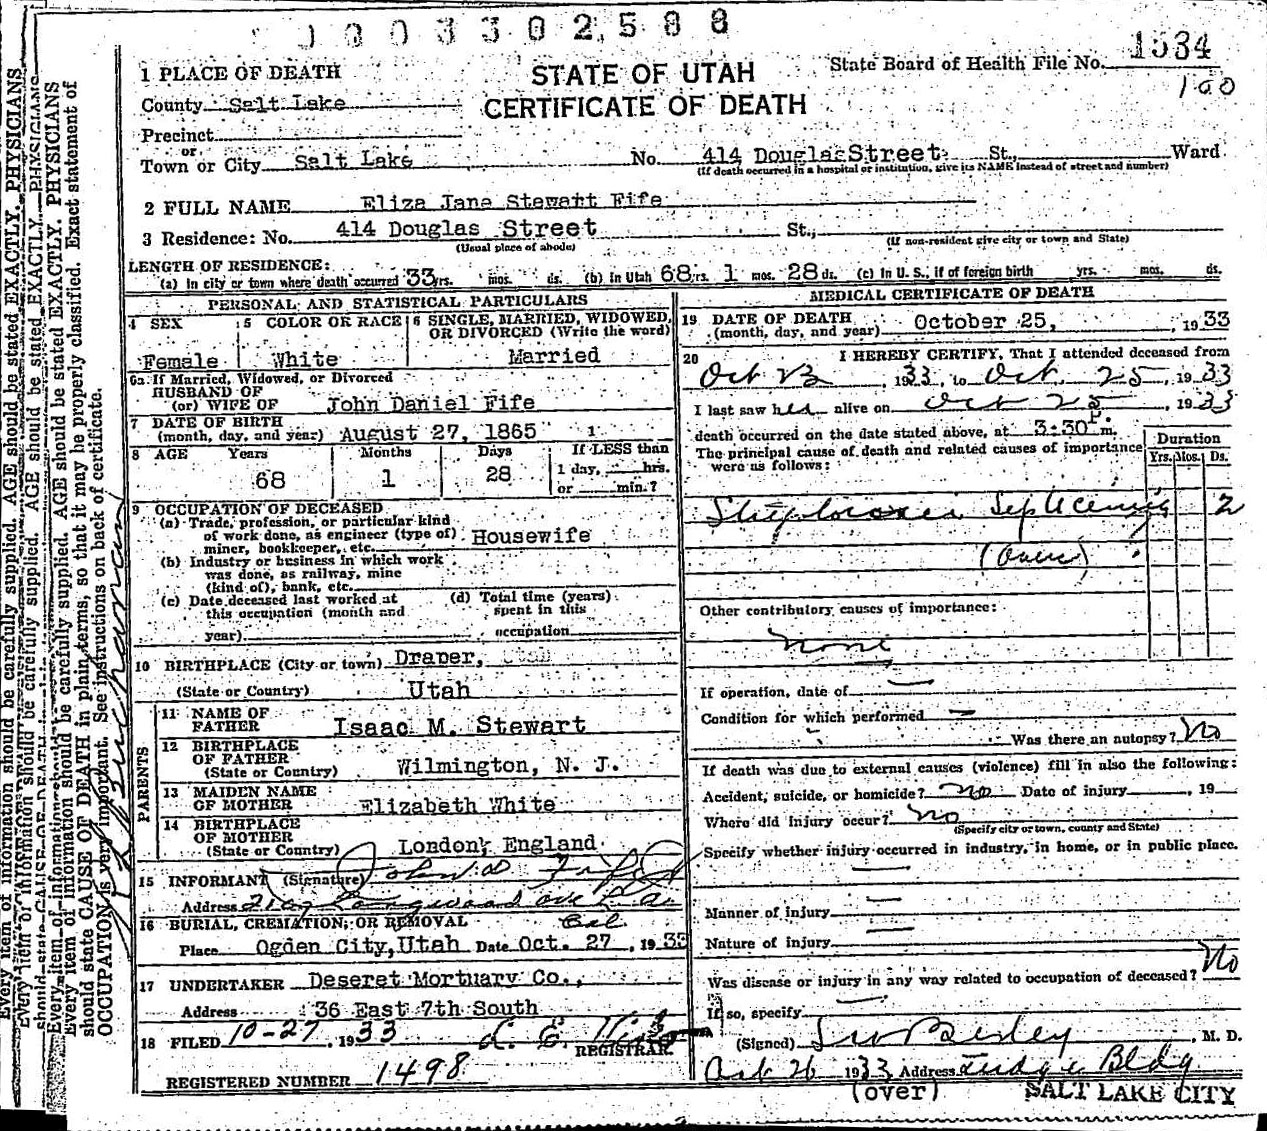 1003302588
1 PLACE OF DEATH
STATE OF UTAH
CERTIFICATE OF DEATH
State Board of Health File No. 1534
100
County Salt Lake
Precinct
or
Town or City Salt Lake No. 414 Douglas Street St., Ward
(If death occurred in a hospital or institution, give its NAME instead of street and number)
2 FULL NAME Eliza Jane Stewart Fife
3 Residence: No. 414 Douglas Street St.,
(Usual place of abode) (If non-resident give city or town and State)
LENGTH OF RESIDENCE:
(a) In city or town where death occurred 33 yrs. mos. ds. (b) in Utah 68 yrs. 1 mos. 28 ds. (c) In U. S., if of foreign birth yrs. mos. ds.
PERSONAL AND STATISTICAL PARTICULARS
4 SEX
Female
5 COLOR OR RACE
White
6 SINGLE, MARRIED, WIDOWED,
OR DIVORCED (Write the word)
Married
6a If Married, Widowed, or Divorced
HUSBAND OF
(or) WIFE OF John Daniel Fife
7 DATE OF BIRTH
(month, day, and year) August 27, 1865
8 AGE Years Months Days If LESS than
68 1 28 1 day, hrs.
or min.?
9 OCCUPATION OF DECEASED
(a) Trade, profession, or particular kind
of work done, as engineer (type of)
miner, bookkeeper, etc. Housewife
(b) Industry or business in which work
was done, as railway, mine
(kind of), bank, etc.
(c) Date deceased last worked at
this occupation (month and
year)
(d) Total time (years)
spent in this
occupation
10 BIRTHPLACE (City or town) Draper,
(State or Country) Utah
PARENTS
11 NAME OF
FATHER Isaac M. Stewart
12 BIRTHPLACE
OF FATHER
(State or Country) Wilmington, N. J.
13 MAIDEN NAME
OF MOTHER Elizabeth White
14 BIRTHPLACE
OF MOTHER
(State or Country) London, England
15 INFORMANT (Signature) John D Fife
Address Longwood Ave L. A.
Cal.
16 BURIAL, CREMATION, OR REMOVAL
Place Ogden City, Utah Date Oct. 27, 1933
17 UNDERTAKER Deseret Mortuary Co.,
Address 36 East 7th South
18 FILED 10-27, 1933
REGISTRAR
REGISTERED NUMBER 1498
MEDICAL CERTIFICATE OF DEATH
19 DATE OF DEATH
(month, day, and year) October 25, , 1933
20 I HEREBY CERTIFY, That I attended deceased from
Oct 23, 1933, to Oct. 25, 1933
I last saw her alive on Oct 25, 1933
death occurred on the date stated above, at 3:30 P. m.
The principal cause of death and related causes of importance
were as follows:
Duration
Yrs. Mos. Ds.
Septicemia 2
(over)
Other contributory causes of importance:
none
If operation, date of —
Condition for which performed —
Was there an autopsy? No
If death was due to external causes (violence) fill in also the following:
Accident, suicide, or homicide? no Date of injury , 19
Where did injury occur? no
(Specify city or town, county and State)
Specify whether injury occurred in industry, in home, or in public place.
Manner of injury —
Nature of injury —
Was disease or injury in any way related to occupation of deceased? No
If so, specify —
(Signed) , M. D.
Oct 26 1933 Address Judge Bldg
(over) SALT LAKE CITY
Every item of information should be carefully supplied. AGE should be stated EXACTLY. PHYSICIANS
should state CAUSE OF DEATH in plain terms, so that it may be properly classified. Exact statement of
OCCUPATION is very important. See instructions on back of certificate.